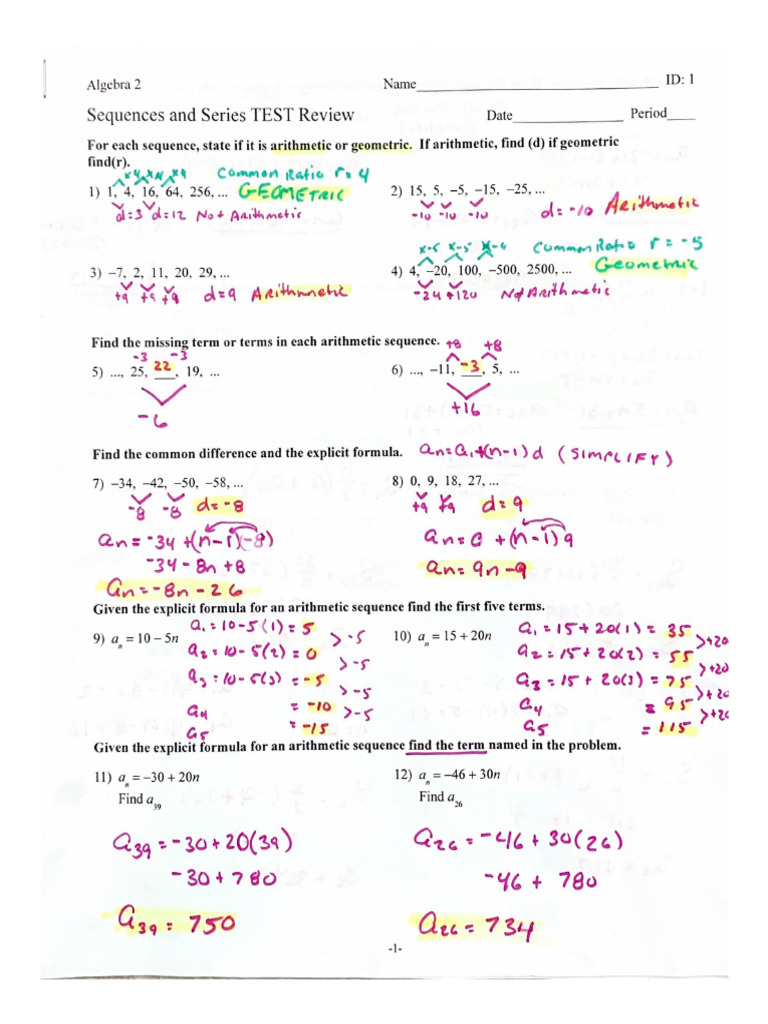 Algebra 2 Name____________________ ID: 1
Sequences and Series TEST Review Date____________ Period____
For each sequence, state if it is arithmetic or geometric. If arithmetic, find (d) if geometric
find(r).
x4 x4 x4 Common Ratio r = 4
1) 1, 4, 16, 64, 256, ... GEOMETRIC
d=3 d=12 Not Arithmetic
2) 15, 5, –5, –15, –25, ...
-10 -10 -10 d=-10 Arithmetic
3) –7, 2, 11, 20, 29, ...
+9 +9 +9 d=9 Arithmetic
x-5 x-5 Common Ratio r = -5
4) 4, –20, 100, –500, 2500, ... Geometric
-24 +120 Not Arithmetic
Find the missing term or terms in each arithmetic sequence.
-3 -3
5) ..., 25, 22, 19, ...
-6
+8 +8
6) ..., –11, -3, 5, ...
+16
Find the common difference and the explicit formula. an=a1+(n-1)d (SIMPLIFY)
7) –34, –42, –50, –58, ...
-8 -8 d=-8
an=-34+(n-1)(-8)
-34-8n+8
an=-8n-26
8) 0, 9, 18, 27, ...
+9 +9 d=9
an=0+(n-1)9
an=9n-9
Given the explicit formula for an arithmetic sequence find the first five terms.
9) an = 10 – 5n
a1=10-5(1)=5
a2=10-5(2)=0
a3=10-5(3)=-5
a4 =-10
a5 =-15
>-5
>-5
>-5
>-5
10) an = 15 + 20n
a1=15+20(1)=35
a2=15+20(2)=55
a3=15+20(3)=75
a4 =95
a5 =115
>+20
>+20
>+20
>+20
Given the explicit formula for an arithmetic sequence find the term named in the problem.
11) an = –30 + 20n
Find a39
a39=-30+20(39)
-30+780
a39=750
12) an = –46 + 30n
Find a26
a26=-46+30(26)
-46+780
a26=734
-1-